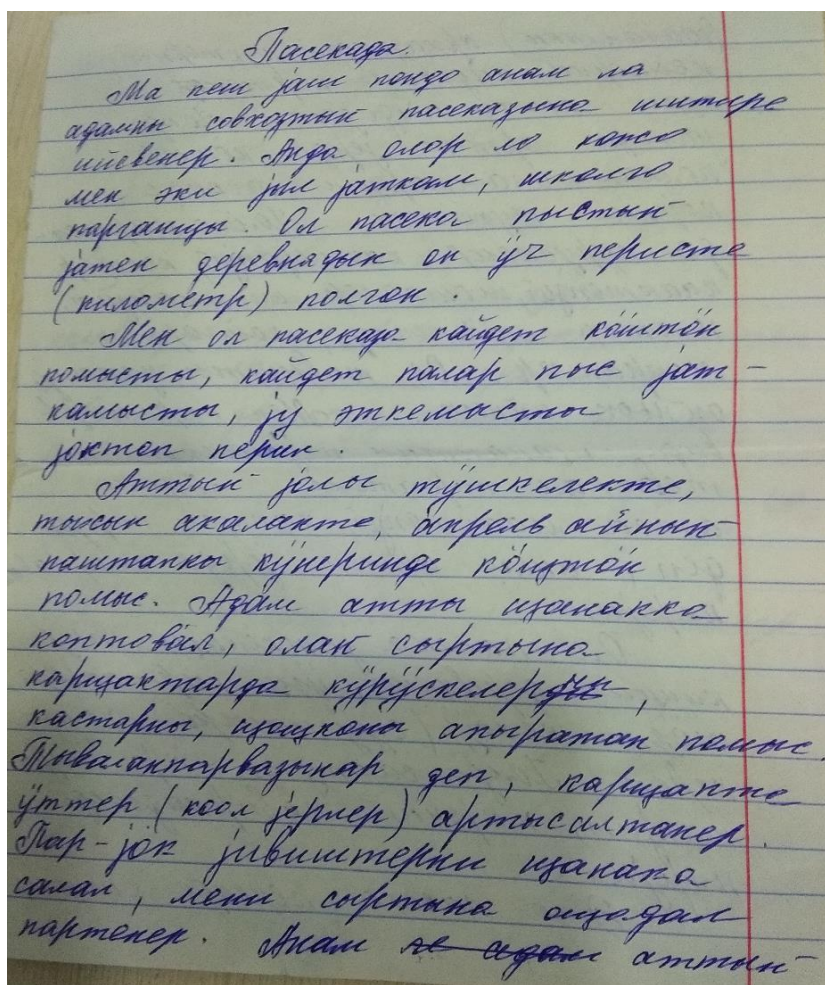 Пасекада.
Ма пеш јаш полдо анам ла
адамны совхозтыҥ пасеказына ийтире
ийвенер. Анда олар ла кожо
мен эки јыл јаткам, школго
парганцы. Ол пасека пыстыҥ
јатен деревнядыҥ он ӱч перисте
(километр) полгон.
Мен ол пасеказа кайдет кӧштӧн
помысты, кайдет палар пыс јат-
камысты, јӱ эткемысты
јоктоп перин.
Аттыҥ јолы тӱшкелекте,
тысын акалакте, апрель айныҥ
паштапкы кӱнеринде кӧщтӧн
помыс. Адам атты щанакка
коптовал, олаҥ сыртына
карщактарда кӱрӱскелерды,
кастарны, щощконы апыратан помыс.
Тываланпарвазынар деп, карщапте
ӱттер (коол јерлер) артысалтанер.
Пар-јок јивиштерни щанака
салал, мени сыртына ощадал
партенер. Анам аттыҥ